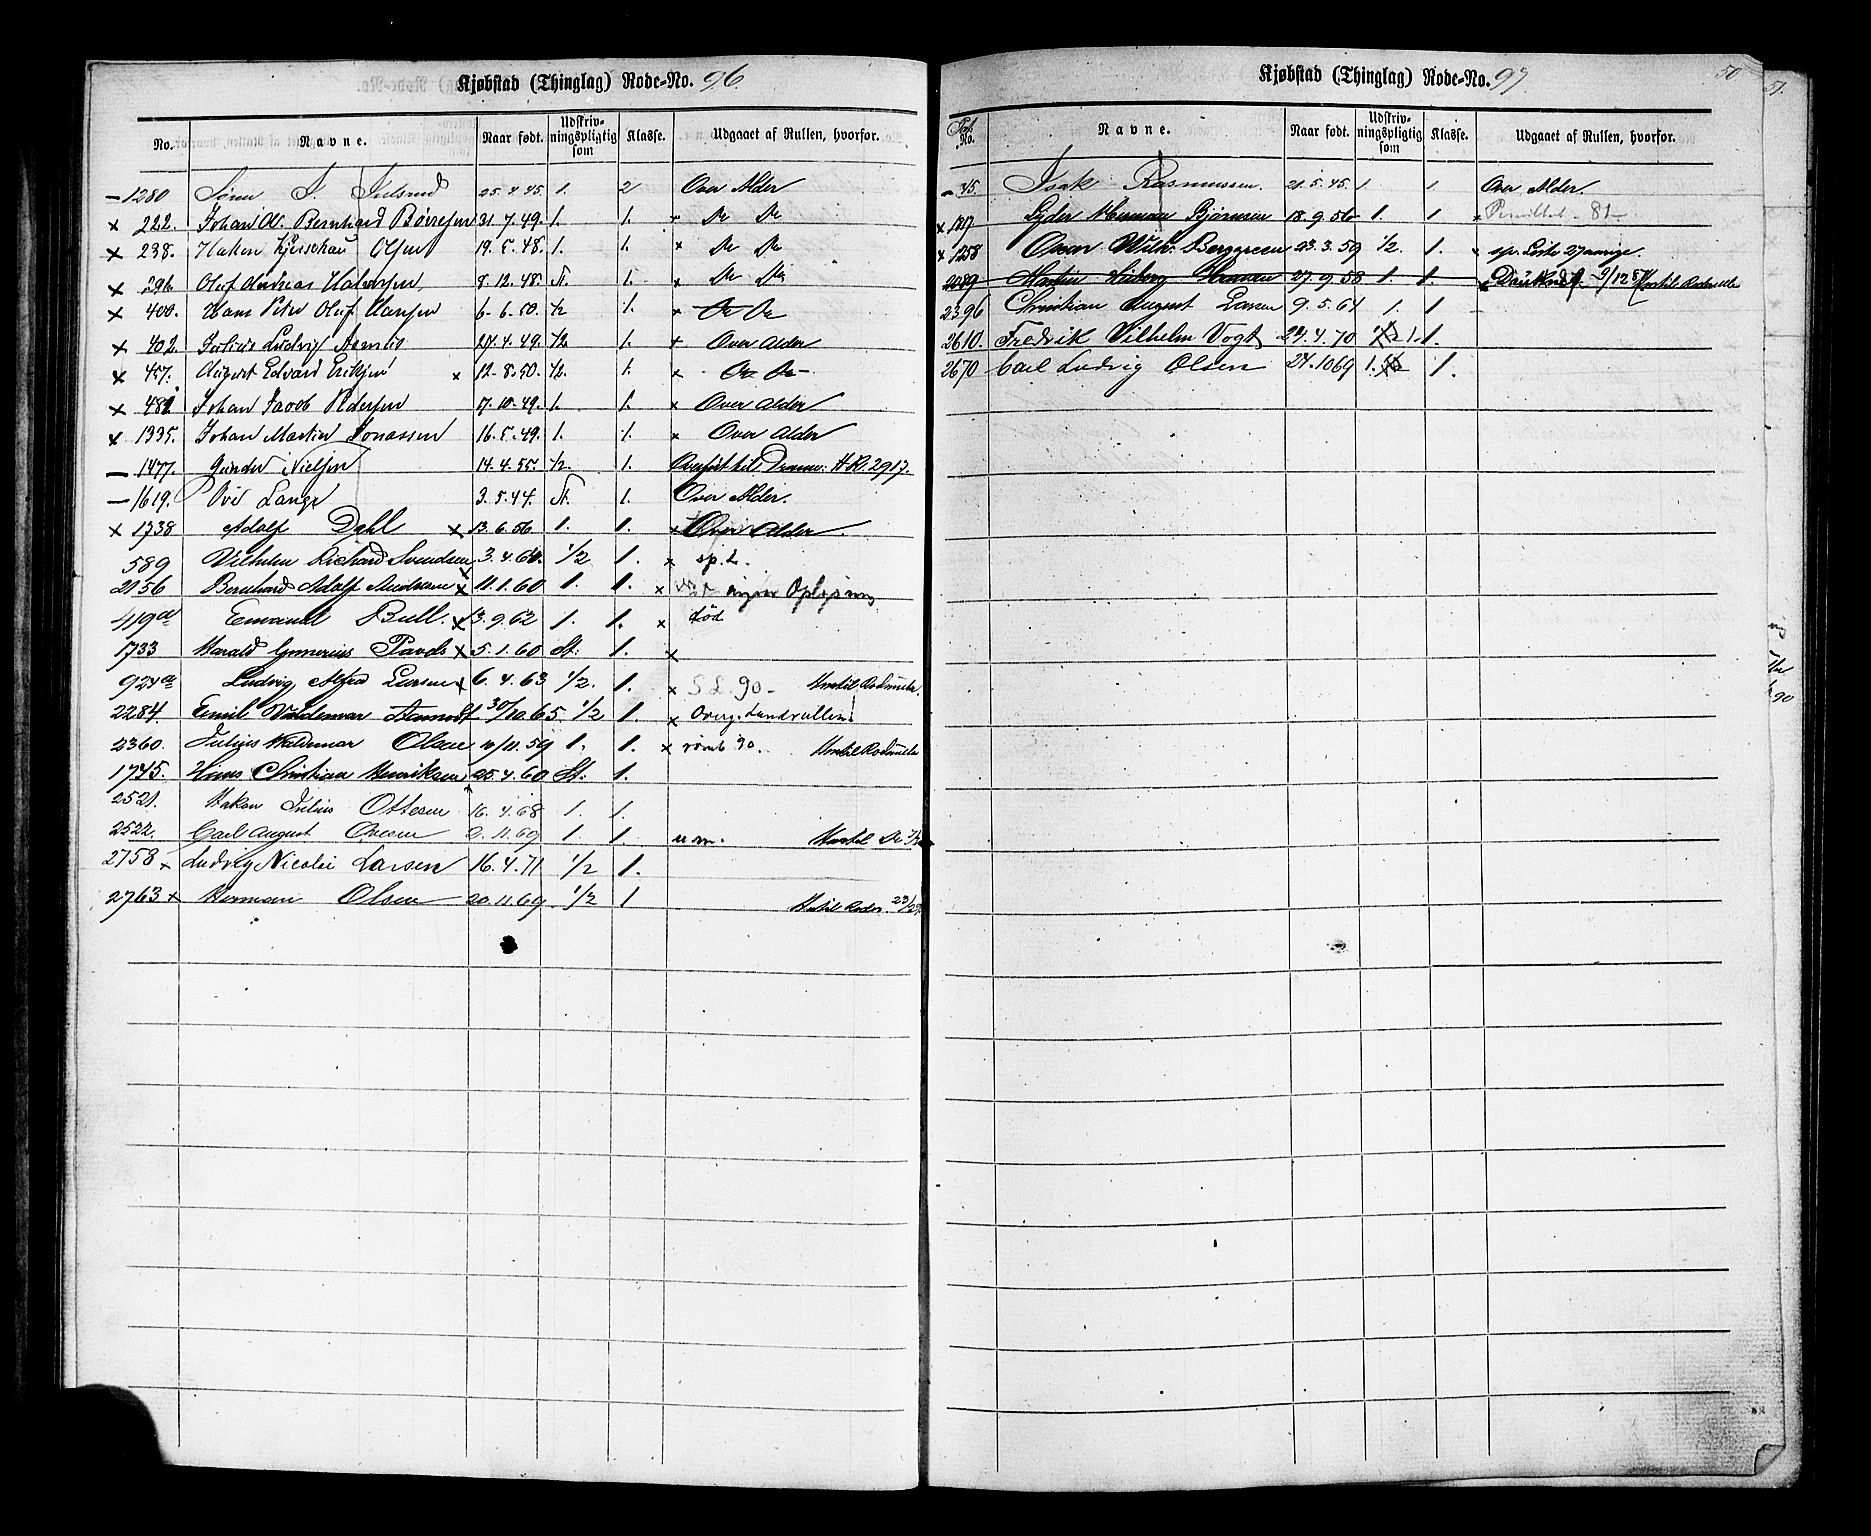 Kjøbstad (Thinglag) Rode-No. 96.
No. Navne. Naar født. Udskriv-ningspligtig som Klasse. Udgaaet af Rullen, hvorfor.
— 1280 Søren J. 25.4.45. 1. 2 Over Alder
x 222. Johan Ol. Bernhard Børresen 31.7.49. 1. 1. x Do Do
x 238. Haken Olsen 19.5.48. 1. 1. x Do Do
x 296. Oluf Andreas Halvorsen 8.12.48. St. 1. x Do Do
x 400. Hans Peter Oluf Hansen 6.6.50. 1/2 1. x Do Do
x 402. Julius Ludvig 27.4.49. 1/2. 1. x Over Alder
x 457. August Edvard Eriksen x 12.8.50. 1/2. 1. x Do Do
x 481. Johan Jacob Pedersen 17.10.49. 1. 1. x Over Alder
x 1335. Johan Martin Jonassen 16.5.49. 1. 1. x Over Alder
— 1477. Gunder Nielsen 14.4.55. 1/2. 1. Overført til Dramm: H.R. 2917.
— 1619. Ove Lange 3.5.44. St. 1. Over Alder.
x 1738 Adolf Dahl x 13.6.56 1. 1. x Over Alder.
589 Vilhelm Richard Svendsen 3.4.60. 1/2 1. x sp. L.
2156 Bernhard Adolf Andersen x 11.1.60 1. 1. x ingen Oplysning
419 a Emanuel Bull. x 13.9.62 1. 1. x død
1733 Harald Gunerius x 5.1.60 St. 1. x
924 a Ludvig Alfred Larsen x 6.4.63 1/2. 1. x S.L. 90 –
2284. Emil Valdemar 30/10.65. 1/2 1. x Overg. Landrullen
2360. Julius Waldemar Olsen 10/11.59 1. 1. x rømt 90.
1745. Hans Christian Henriksen 25.4.60 St. 1.
2521. Hakon Julius Ottesen 16.4.68 1. 1.
2522. Carl August 2.11.69 1. 1
2758 x Ludvig Nicolai Larsen 16.4.71 1/2 1.
2763 x Herman Olsen 20.11.69 1/2 1
Kjøbstad (Thinglag) Rode-No. 97
50
No. Navne. Naar født. Udskriv-ningspligtig som Klasse. Udgaaet af Rullen, hvorfor.
— 45. Isak Rasmussen. 21.5.45. 1 1. Over Alder.
x 1317 Lyder Herman Bjørnsen 18.9.56 1. 1 x – 81 –
x 1258 Oscar Wilh. Berggreen 23.3.59 1/2. 1. x sp. Liste 27 aarige.
2089 Martin Hansen 27.9.58 1. 1.
2396 Christian August Larsen 9.5.61 1. 1
2610. Fredrik Vilhelm Vogt 24.4.70 1. 1.
2670 Carl Ludvig Olsen 24.10 69 1. 1.
51.